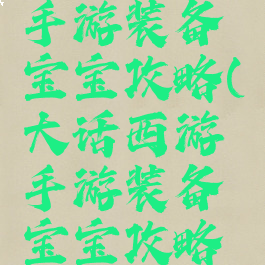 手游装备
宝宝攻略(
大话西游
手游装备
宝宝攻略